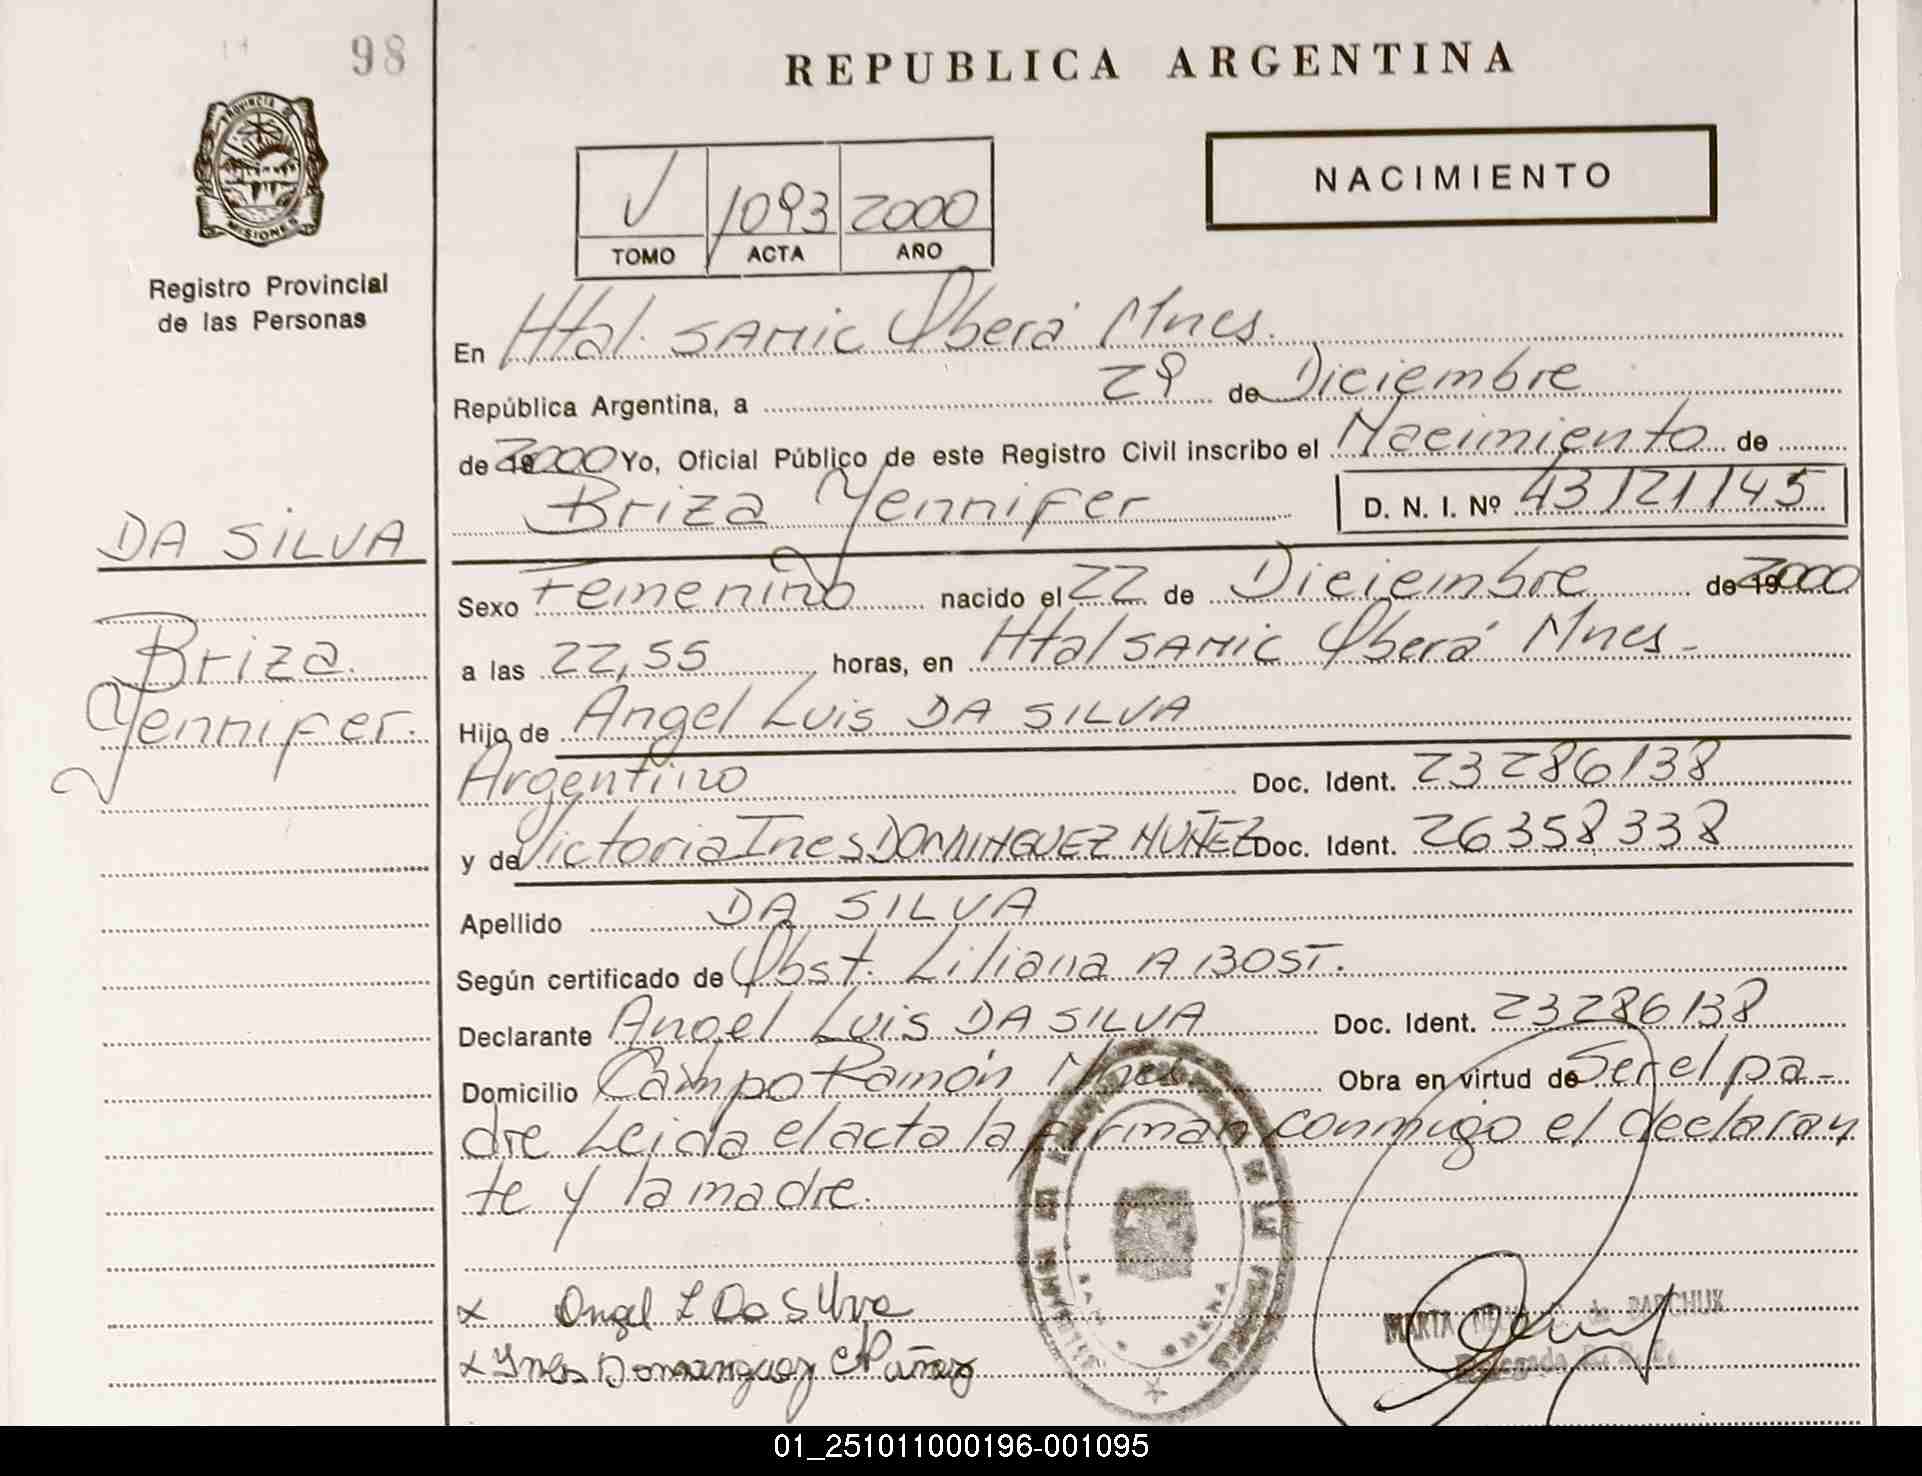 98
REPUBLICA ARGENTINA
PROVINCIA DE
MISIONES
Registro Provincial
de las Personas
NACIMIENTO
V 1093 2000
TOMO ACTA AÑO
En Htal. SAMIC Oberá Mnes.
República Argentina, a 29 de Diciembre
de 2000 Yo, Oficial Público de este Registro Civil inscribo el Nacimiento de
Briza Yennifer D. N. I. Nº 43121145
DA SILVA
Briza
Yennifer.
Sexo Femenino nacido el 22 de Diciembre de 19 2000
a las 22,55 horas, en Htal SAMIC Oberá Mnes-
Hijo de Angel Luis DA SILVA
Argentino Doc. Ident. 23286138
y de Victoria Ines DOMINGUEZ NUÑEZ Doc. Ident. 26358338
Apellido DA SILVA
Según certificado de Obst. Liliana A BOST.
Declarante Angel Luis DA SILVA Doc. Ident. 23286138
Domicilio Campo Ramón Mnes. Obra en virtud de Ser el pa-
dre Leida el acta la firman conmigo el declaran
te y la madre.
x Angel L Da Silva
x Ynes Dominguez Nuñez
MARTA de DARCHUK
01_251011000196-001095